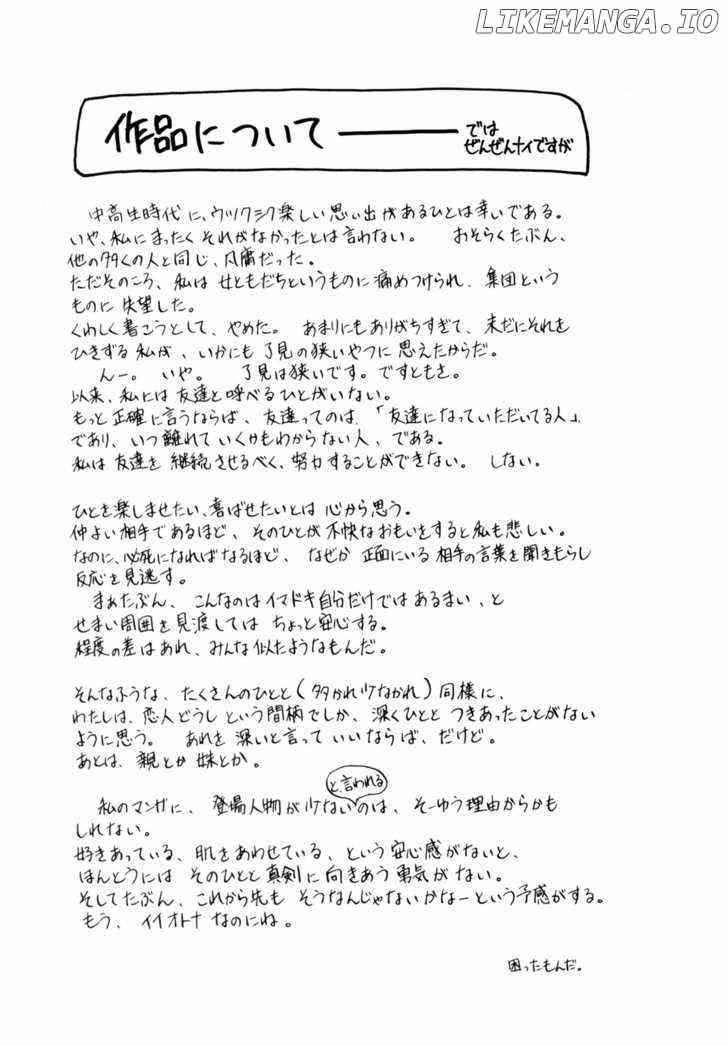 LIKEMANGA.IO
作品について――― では
ぜんぜんナイですが
中高生時代に、ウツクシク楽しい思い出があるひとは幸いである。
いや、私にまったくそれがなかったとは言わない。 おそらくたぶん、
他の多くの人と同じ、凡庸だった。
ただそのころ、私は女ともだちというものに痛めつけられ、集団という
ものに失望した。
くわしく書こうとして、やめた。 あまりにもありがちすぎて、未だにそれを
ひきずる私が、いかにも了見の狭いやつに思えたからだ。
んー。 いや。 了見は狭いです。ですともさ。
以来、私には友達と呼べるひとがいない。
もっと正確に言うならば、友達ってのは、「友達になっていただいてる人」
であり、いつ離れていくかもわからない人、である。
私は友達を継続させるべく、努力することができない。 しない。
ひとを楽しませたい、喜ばせたいとは心から思う。
仲よい相手であるほど、そのひとが不快なおもいをすると私も悲しい。
なのに、必死になればなるほど、なぜか正面にいる相手の言葉を聞きもらし
反応を見逃す。
まぁたぶん、こんなのはイマドキ自分だけではあるまい、と
せまい周囲を見渡してはちょっと安心する。
程度の差はあれ、みんな似たようなもんだ。
そんなふうな、たくさんのひとと(多かれ少なかれ)同様に、
わたしは、恋人どうしという間柄でしか、深くひととつきあったことがない
ように思う。 あれを深いと言っていいならば、だけど。
あとは、親とか妹とか。
私のマンガに、登場人物が少ないと、言われるのは、そーゆう理由からかも
しれない。
好きあっている、肌をあわせている、という安心感がないと、
ほんとうにはそのひとと真剣に向きあう勇気がない。
そしてたぶん、これから先もそうなんじゃないかなーという予感がする。
もう、イイオトナなのにね。
困ったもんだ。